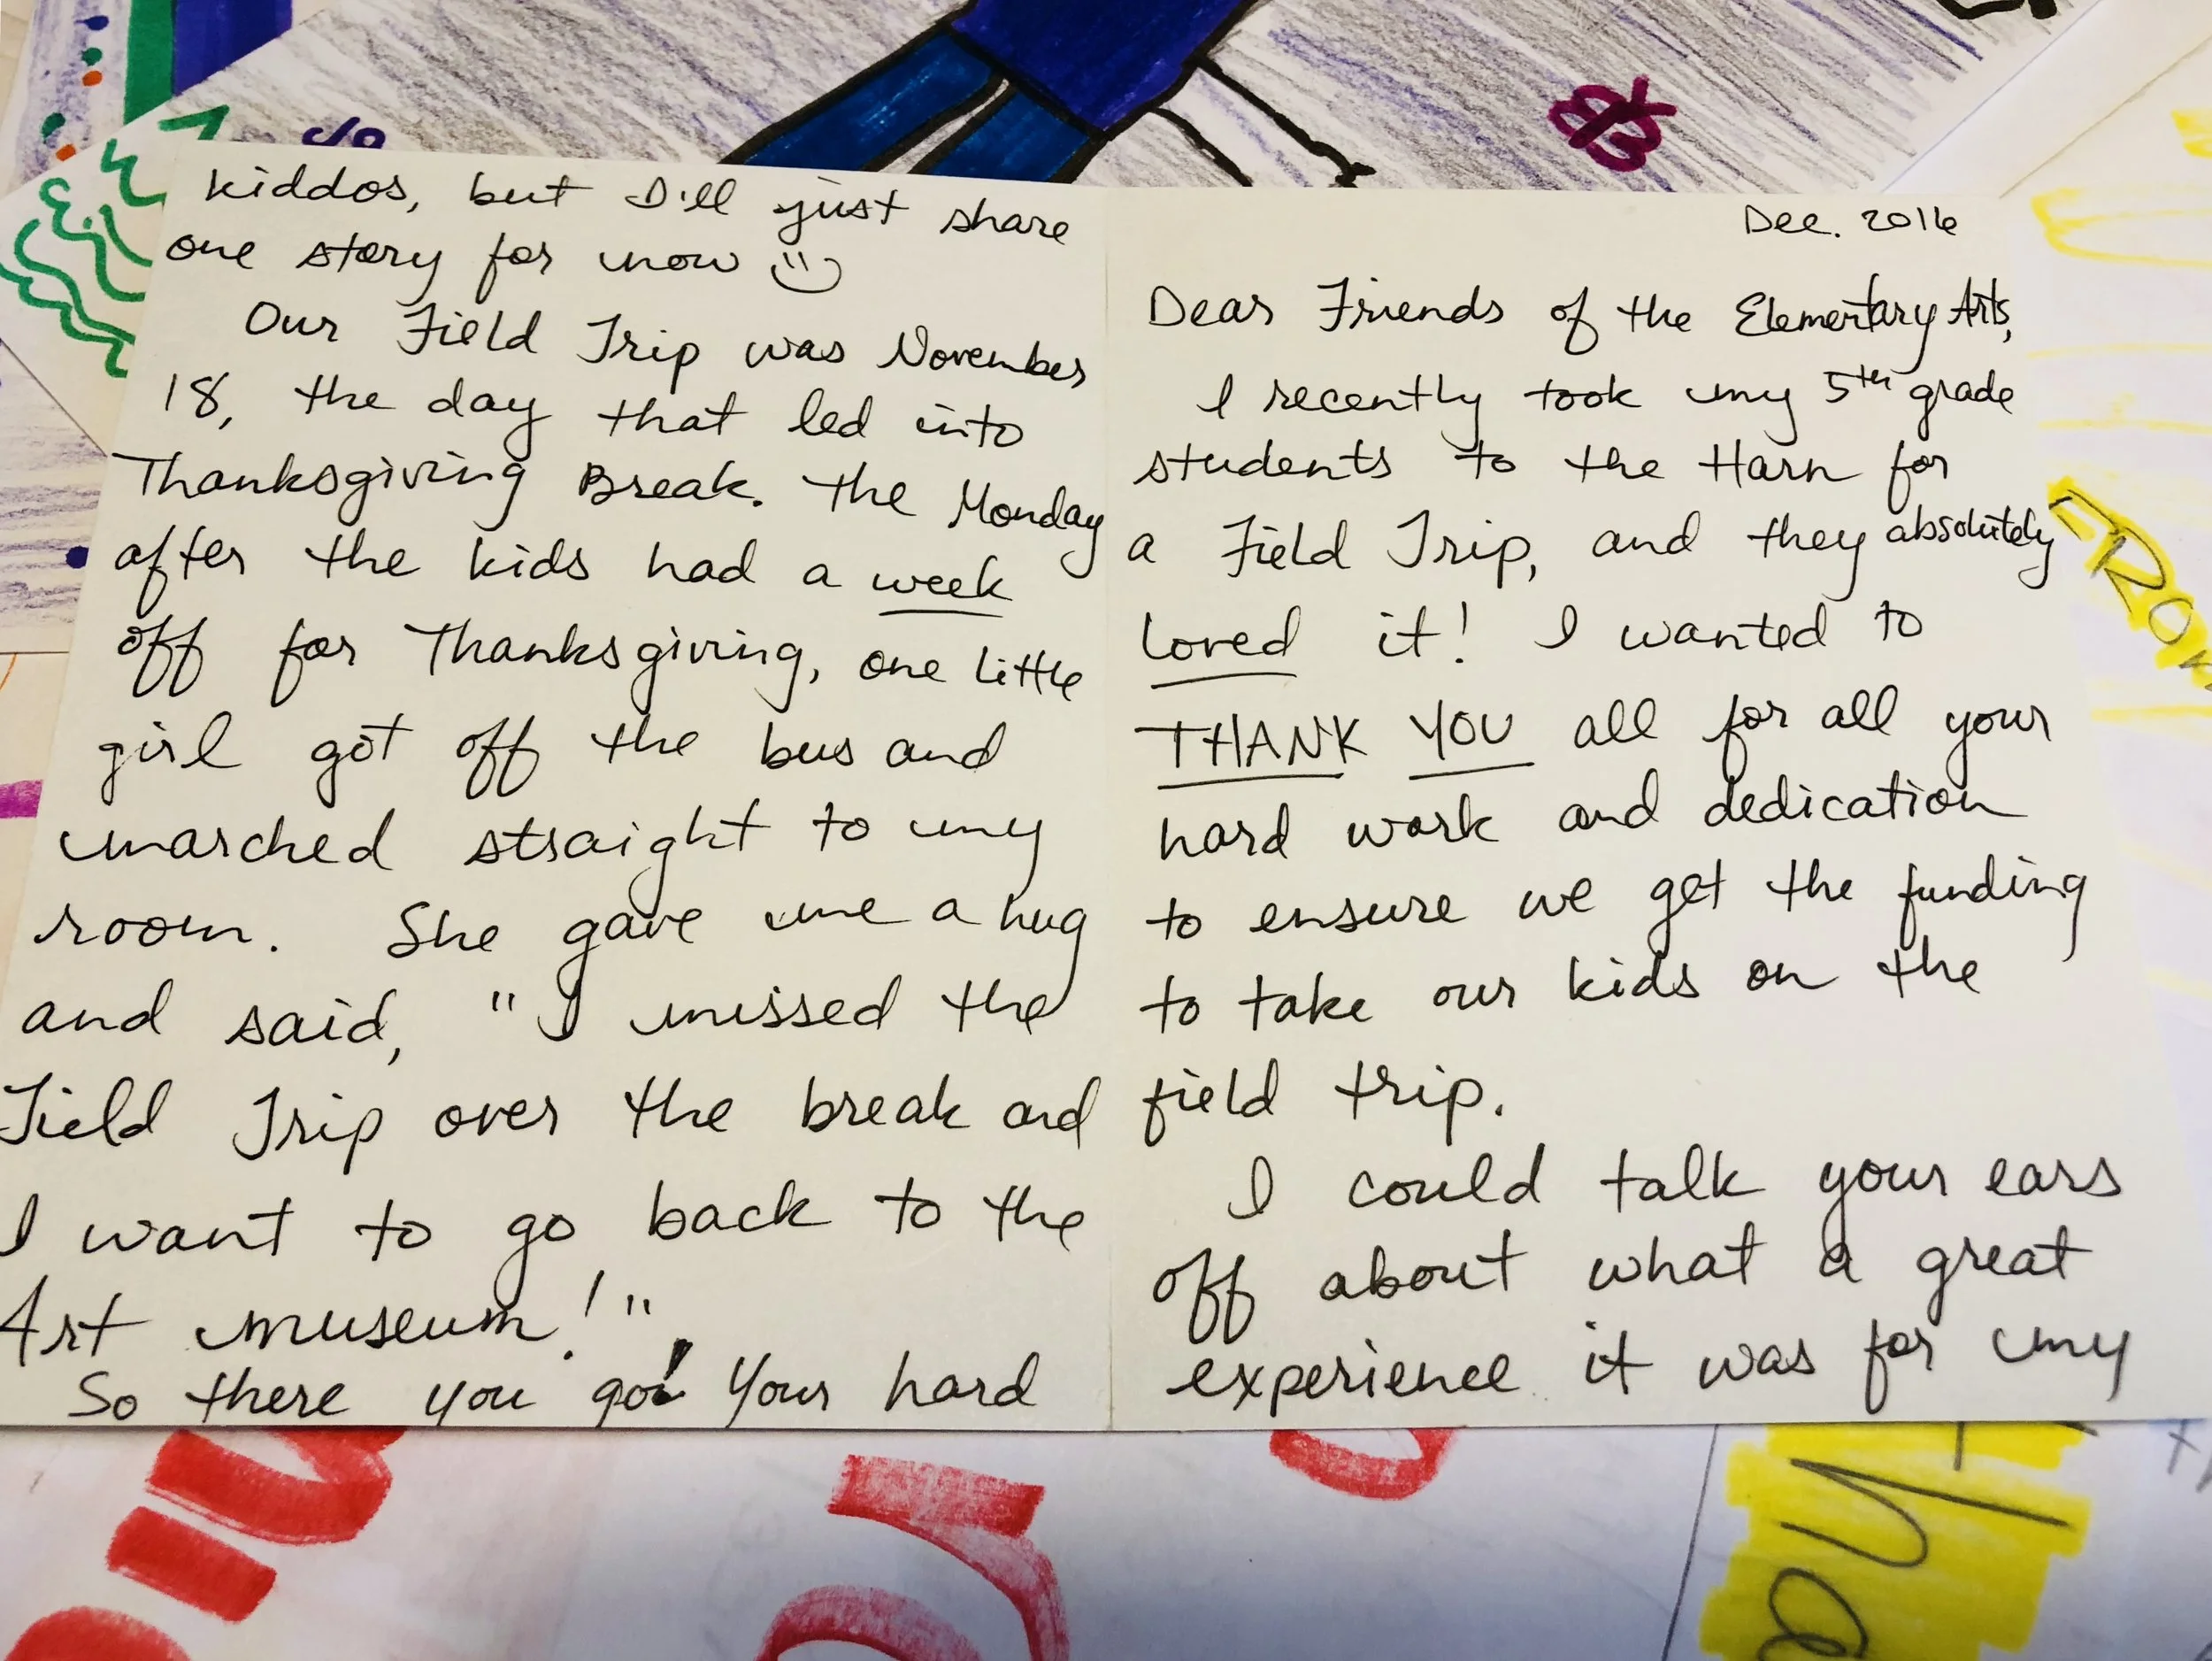 Dec. 2016
Dear Friends of the Elementary Arts,
I recently took my 5th grade
students to the Harn for
a Field Trip, and they absolutely
loved it! I wanted to
THANK YOU all for all your
hard work and dedication
to ensure we get the funding
to take our kids on the
field trip.
I could talk your ears
off about what a great
experience it was for my
kiddos, but I'll just share
one story for now
Our Field Trip was November
18, the day that led into
Thanksgiving Break. The Monday
after the kids had a week
off for Thanksgiving, one little
girl got off the bus and
marched straight to my
room. She gave me a hug
and said, "I missed the
Field Trip over the break and
I want to go back to the
Art museum!"
So there you go! Your hard